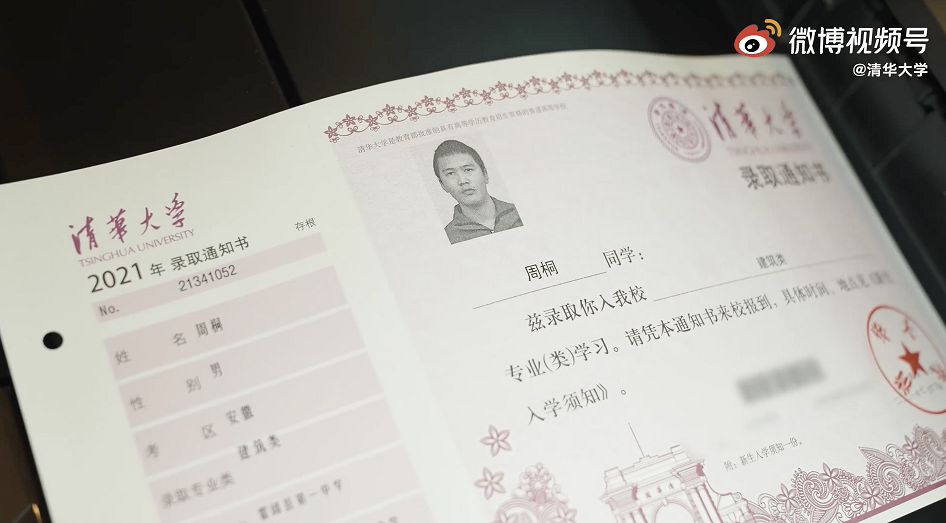 微博视频号
@清华大学
清华大学
TSINGHUA UNIVERSITY
存根
2021 年 录取通知书
No. 21341052
姓 名 周桐
性 别 男
考 区 安徽
录取专业类 建筑类
霍邱县第一中学
清华大学是教育部批准的具有高等学历教育招生资格的普通高等学校
清华大学
TSINGHUA UNIVERSITY
录取通知书
周桐 同学：
兹录取你入我校 建筑类
专业(类)学习。请凭本通知书来校报到，具体时间、地点见《新生
入学须知》。
附：新生入学须知一份。